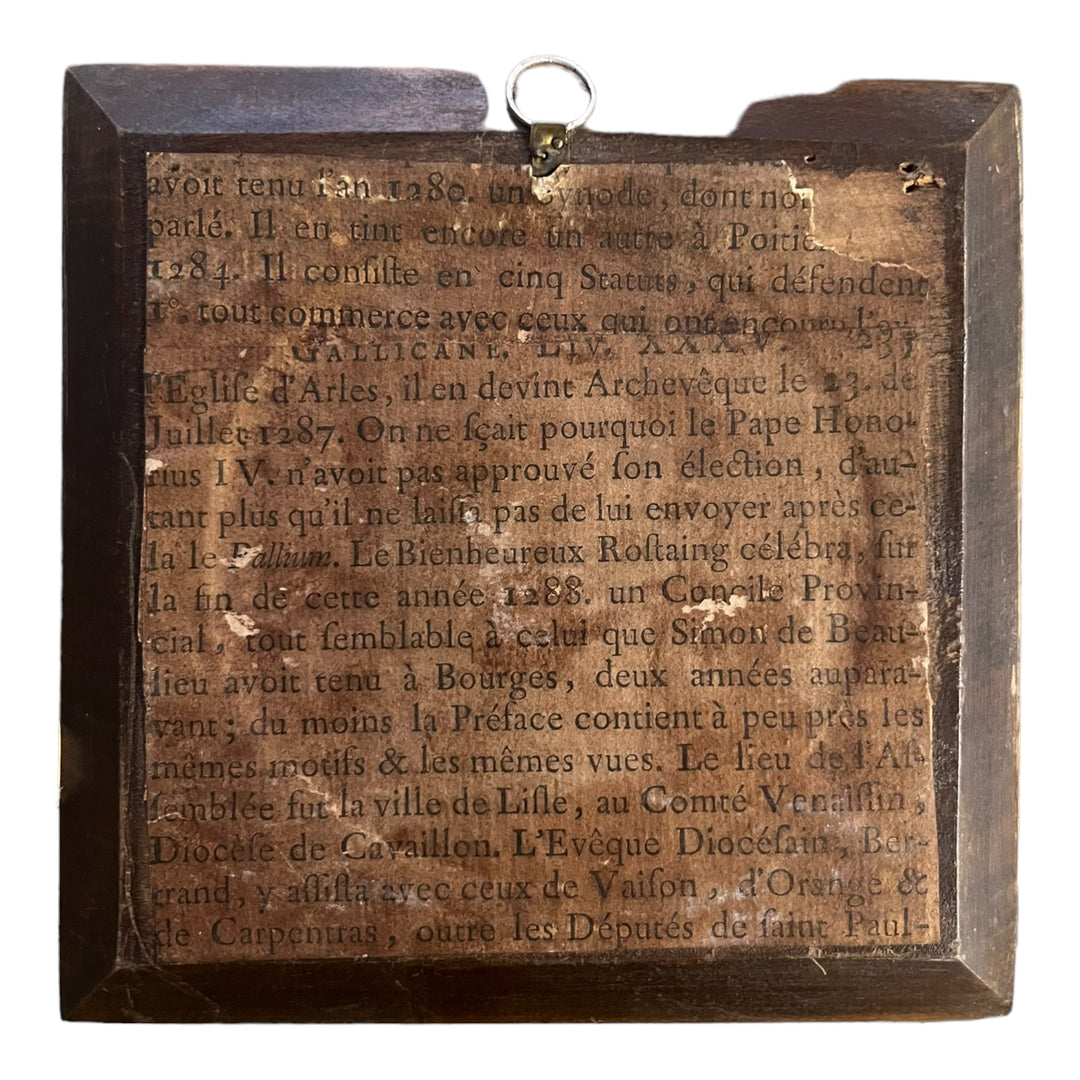 avoit tenu l'an 1280. un Synode, dont
parlé. Il en tint encore un autre à
1284. Il conſiſte en cinq Statuts, qui défendent
1°. tout commerce avec ceux qui ont encouru
GALLICANE, LIV. XXXV. 235
l'Egliſe d'Arles, il en devint Archevêque le 23. de
Juillet 1287. On ne ſçait pourquoi le Pape Hono-
rius IV. n'avoit pas approuvé ſon élection, d'au-
tant plus qu'il ne laiſſa pas de lui envoyer après ce-
la le Pallium. Le Bienheureux Roſtaing célébra, ſur
la fin de cette année 1288. un Concile Provin-
cial, tout ſemblable à celui que Simon de Beau-
lieu avoit tenu à Bourges, deux années aupara-
vant; du moins la Préface contient à peu près les
mêmes motifs & les mêmes vues. Le lieu de l'Aſ-
ſemblée fut la ville de Liſle, au Comté Venaiſſin,
Diocèſe de Cavaillon. L'Evêque Diocéſain, Ber-
trand, y aſſiſta avec ceux de Vaiſon, d'Orange &
de Carpentras, outre les Députés de ſaint Paul-